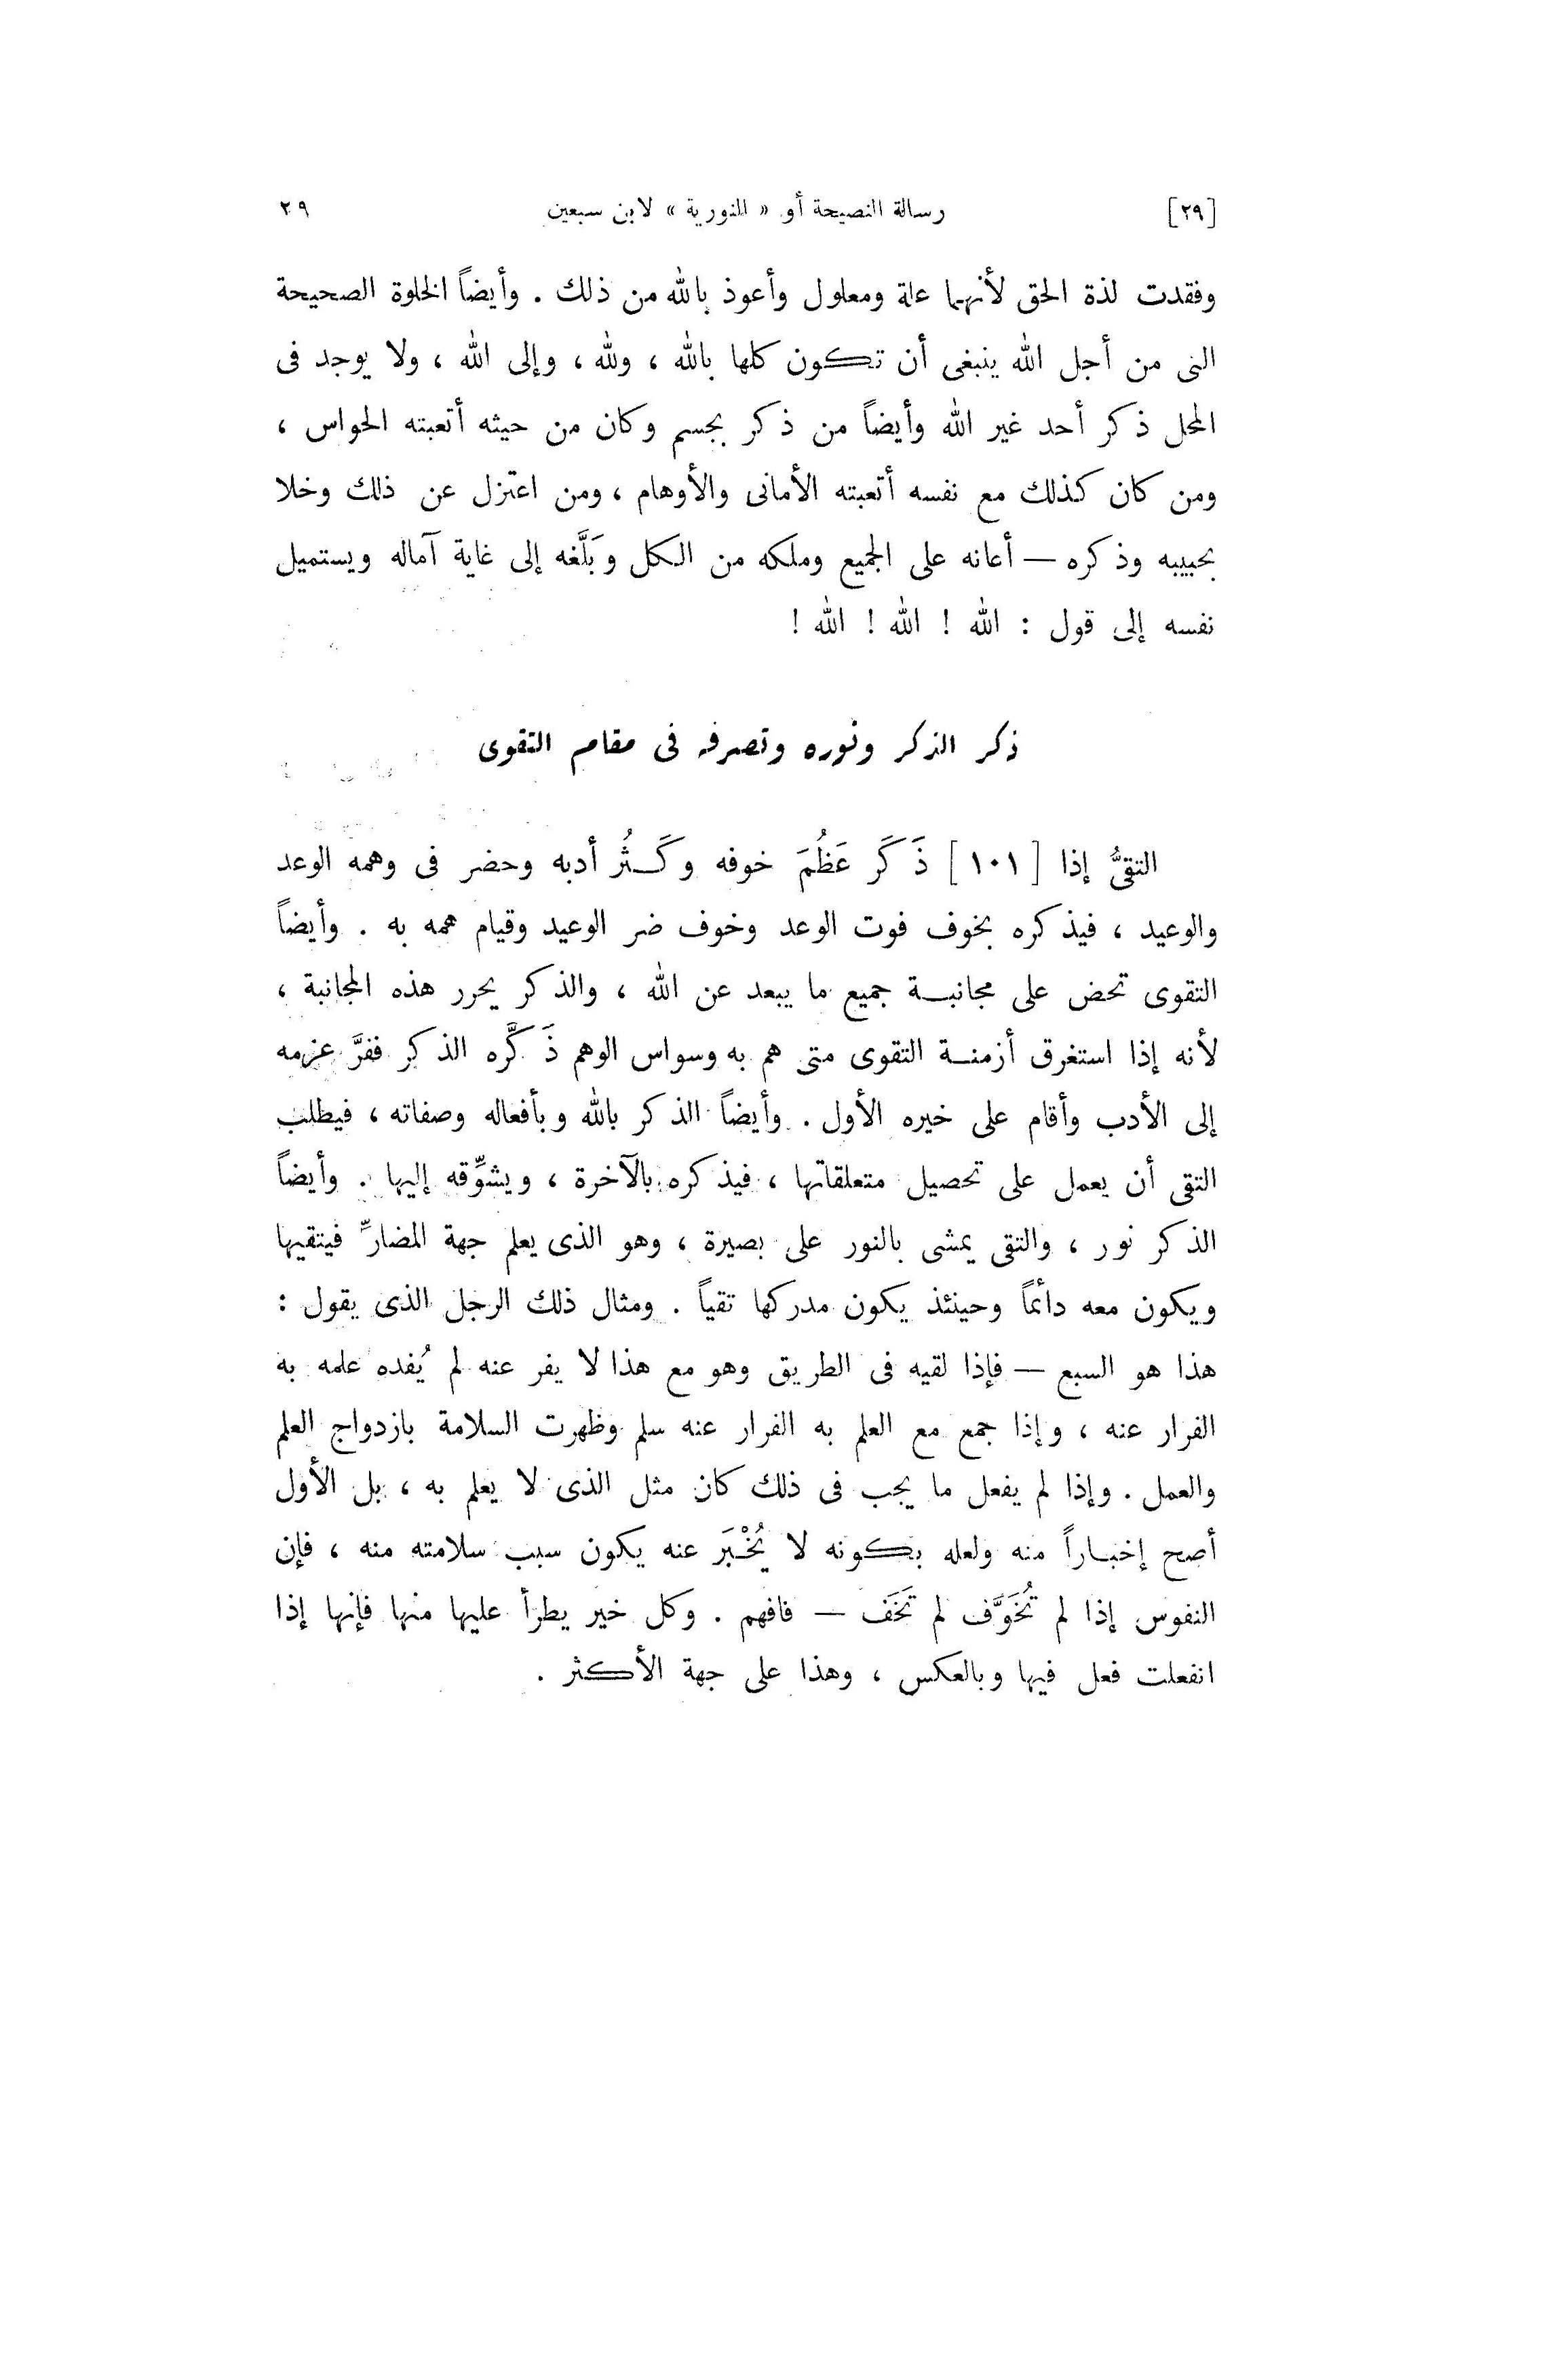 [٢٩] رسالة النصيحة أو « النورية » لابن سبعين ٢٩
وفقدت لذة الحق لأنهما علة ومعلول وأعوذ بالله من ذلك . وأيضاً الخلوة الصحيحة
التى من أجل الله ينبغى أن تكون كلها بالله ، ولله ، وإلى الله ، ولا يوجد فى
المحل ذكر أحد غير الله وأيضاً من ذكر بجسم وكان من حيثه أتعبته الحواس ،
ومن كان كذلك مع نفسه أتعبته الأمانى والأوهام ، ومن اعتزل عن ذلك وخلا
بحبيبه وذكره — أعانه على الجميع وملكه من الكل وبَلَّغه إلى غاية آماله ويستميل
نفسه إلى قول : الله ! الله ! الله !
ذكر الذكر ونوره وتصرفه فى مقام التقوى
التقىُّ إذا [ ١٠١ ] ذَكَر عَظُمَ خوفه وكَثُر أدبه وحضر فى وهمه الوعد
والوعيد ، فيذكره بخوف فوت الوعد وخوف ضر الوعيد وقيام همه به . وأيضاً
التقوى تحض على مجانبة جميع ما يبعد عن الله ، والذكر يحرر هذه المجانبة ،
لأنه إذا استغرق أزمنة التقوى متى هم به وسواس الوهم ذَكَّره الذكر ففرَّ عزمه
إلى الأدب وأقام على خيره الأول . وأيضاً الذكر بالله وبأفعاله وصفاته ، فيطلب
التقى أن يعمل على تحصيل متعلقاتها ، فيذكره بالآخرة ، ويشوِّقه إليها . وأيضاً
الذكر نور ، والتقى يمشى بالنور على بصيرة ، وهو الذى يعلم جهة المضارِّ فيتقيها
ويكون معه دائماً وحينئذ يكون مدركها تقياً . ومثال ذلك الرجل الذى يقول :
هذا هو السبع — فإذا لقيه فى الطريق وهو مع هذا لا يفر عنه لم يُفده علمه به
الفرار عنه ، وإذا جمع مع العلم به الفرار عنه سلم وظهرت السلامة بازدواج العلم
والعمل . وإذا لم يفعل ما يجب فى ذلك كان مثل الذى لا يعلم به ، بل الأول
أصح إخباراً منه ولعله بكونه لا يُخْبَر عنه يكون سبب سلامته منه ، فإن
النفوس إذا لم تُخَوَّف لم تَخَف — فافهم . وكل خير يطرأ عليها منها فإنها إذا
انفعلت فعل فيها وبالعكس ، وهذا على جهة الأكثر .